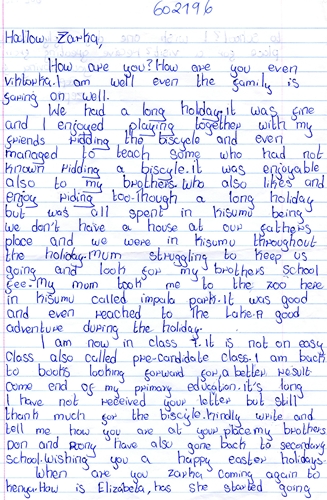 602196
Hallow Zarka,
How are you? How are you even
viktorka. I am well even the family is
going on well.
We had a long holiday. It was fine
and I enjoyed playing together with my
friends ridding the biscycle and even
managed to teach some who had not
known ridding a biscycle. it was enjoyable
also to my brothers. Who also likes and
enjoy riding too. Though a long holiday
but was all spent in kisumu being
we don't have a house at our fathers
place and we were in kisumu throughout
the holiday. mum struggling to keep us
going and look for my brothers school
fee. My mum took me to the zoo here
in kisumu called impala park. It was good
and even reached to the lake. A good
adventure during the holiday.
I am now in class 7. it is not an easy
class also called pre-candidate class. I am back
to books looking forward for a better result
come end of my primary education. it's long
I have not received your letter but still
thank much for the biscycle. kindly write and
tell me how you are at your place. my brothers
Don and Rony have also gone back to secondary
school. Wishing you a happy easter holidays.
When are you zarka coming again to
kenya. How is Elizabeta, has she started going